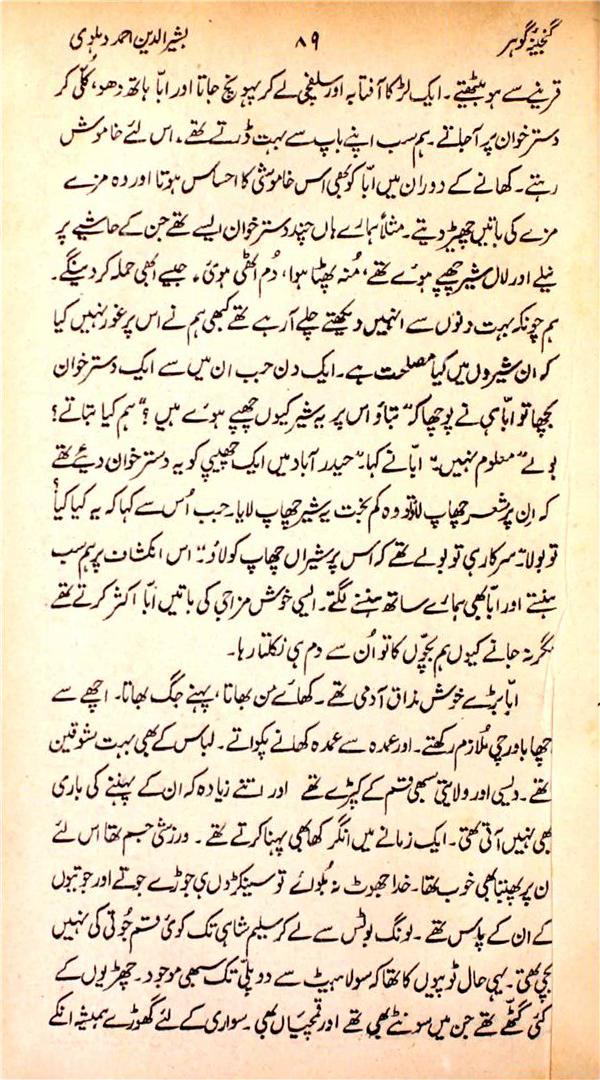 گنجینۂ گوہر ۸۹ بشیر الدین احمد دہلوی
قرینے سے ہو بیٹھتے۔ ایک لڑکا آفتابہ اور سلفچی لے کر پہونچ جاتا اور ابّا ہاتھ دھو، کُلّی کر
دستر خوان پر آجاتے۔ ہم سب اپنے باپ سے بہت ڈرتے تھے۔ اس لئے خاموش
رہتے۔ کھانے کے دوران میں ابّا کو بھی اس خاموشی کا احساس ہوتا اور وہ مزے
مزے کی باتیں چھیڑ دیتے۔ مثلاً ہمارے ہاں چند دستر خوان ایسے تھے جن کے حاشیے پر
نیلے اور لال شیر چھپے ہوئے تھے، مُنہ پھٹا ہوا، دُم اٹھی ہوئی، جیسے ابھی حملہ کر دینگے۔
ہم چونکہ بہت دنوں سے انہیں دیکھتے چلے آرہے تھے کبھی ہم نے اس پر غور نہیں کیا
کہ ان شیروں میں کیا مصلحت ہے۔ ایک دن جب ان میں سے ایک دستر خوان
بچھا تو ابّا ہی نے پوچھا کہ "بتاؤ اس پر یہ شیر کیوں چھپے ہوئے ہیں؟" ہم کیا بتاتے؟
بولے "معلوم نہیں" ابّا نے کہا۔ "حیدر آباد میں ایک چھیپی کو یہ دستر خوان دیئے تھے
کہ اِن پر شعر چھاپ لاؤ تو وہ کم بخت یہ شیر چھاپ لایا۔ جب اُس سے کہا کہ یہ کیا کیا؟
تو بولا۔ سرکار ہی تو بولے تھے کہ اس پر شیراں چھاپ کو لاؤ۔" اس انکشاف پر ہم سب
ہنستے اور ابّا بھی ہمارے ساتھ ہنسنے لگتے۔ ایسی خوش مزاجی کی باتیں ابّا اکثر کرتے تھے
مگر نہ جانے کیوں ہم بچّوں کا تو اُن سے دم ہی نکلتا رہا۔
ابّا بڑے خوش مذاق آدمی تھے۔ کھائے من بھاتا، پہنے جگ بھاتا۔ اچھے سے
چھا باورچی مُلازم رکھتے۔ اور عمدہ سے عمدہ کھانے پکواتے۔ لباس کے بھی بہت شوقین
تھے۔ دیسی اور ولایتی سبھی قسم کے کپڑے تھے اور اتنے زیادہ کہ ان کے پہننے کی باری
بھی نہیں آتی تھی۔ ایک زمانے میں انگرکھا بھی پہنا کرتے تھے۔ ورزشی جسم تھا اس لئے
ن پر پھبتا بھی خوب تھا۔ خدا جھوٹ نہ بُلوائے تو سینکڑوں ہی جوڑے جوتے اور جوتیوں
کے ان کے پاس تھے۔ لونگ بوٹس سے لے کر سلیم شاہی تک کوئی قسم جُوتی کی نہیں
بچی تھی۔ یہی حال ٹوپیوں کا تھا کہ سولا ہیٹ سے دو پلّی تک سبھی موجود۔ چھڑیوں کے
کئی گٹھے تھے جن میں سونٹے بھی تھے اور قمچیاں بھی۔ سواری کے لئے گھوڑے ہمیشہ انکے